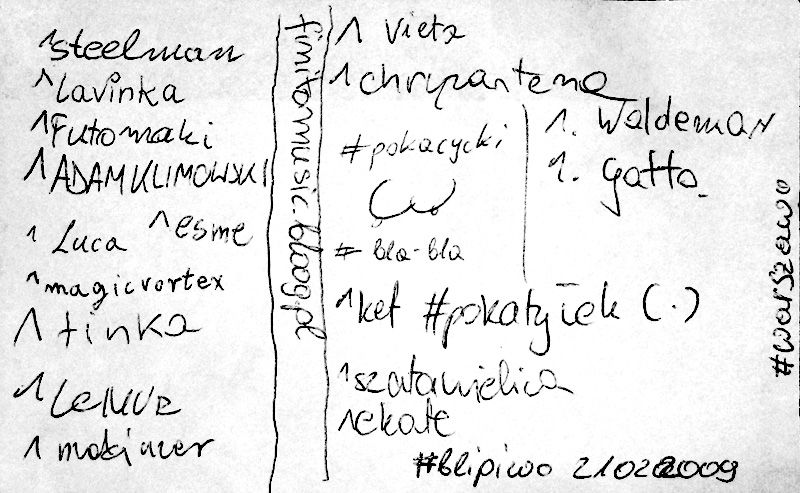 ^steelman
^Lavinka
^Futomaki
^ADAMKLIMOWSKI
^Luca ^esme
^magicvortex
^tinka
^Lemur
^makiwer
fimitomusic.bloog.pl
^Vietz
^chrypantena
#pokacycki
#bla-bla
1. Waldeman
1. gatto.
^ket #pokatyłek (.)
^szatanielica
^ekate
#blipiwo 21022009
#warszawo